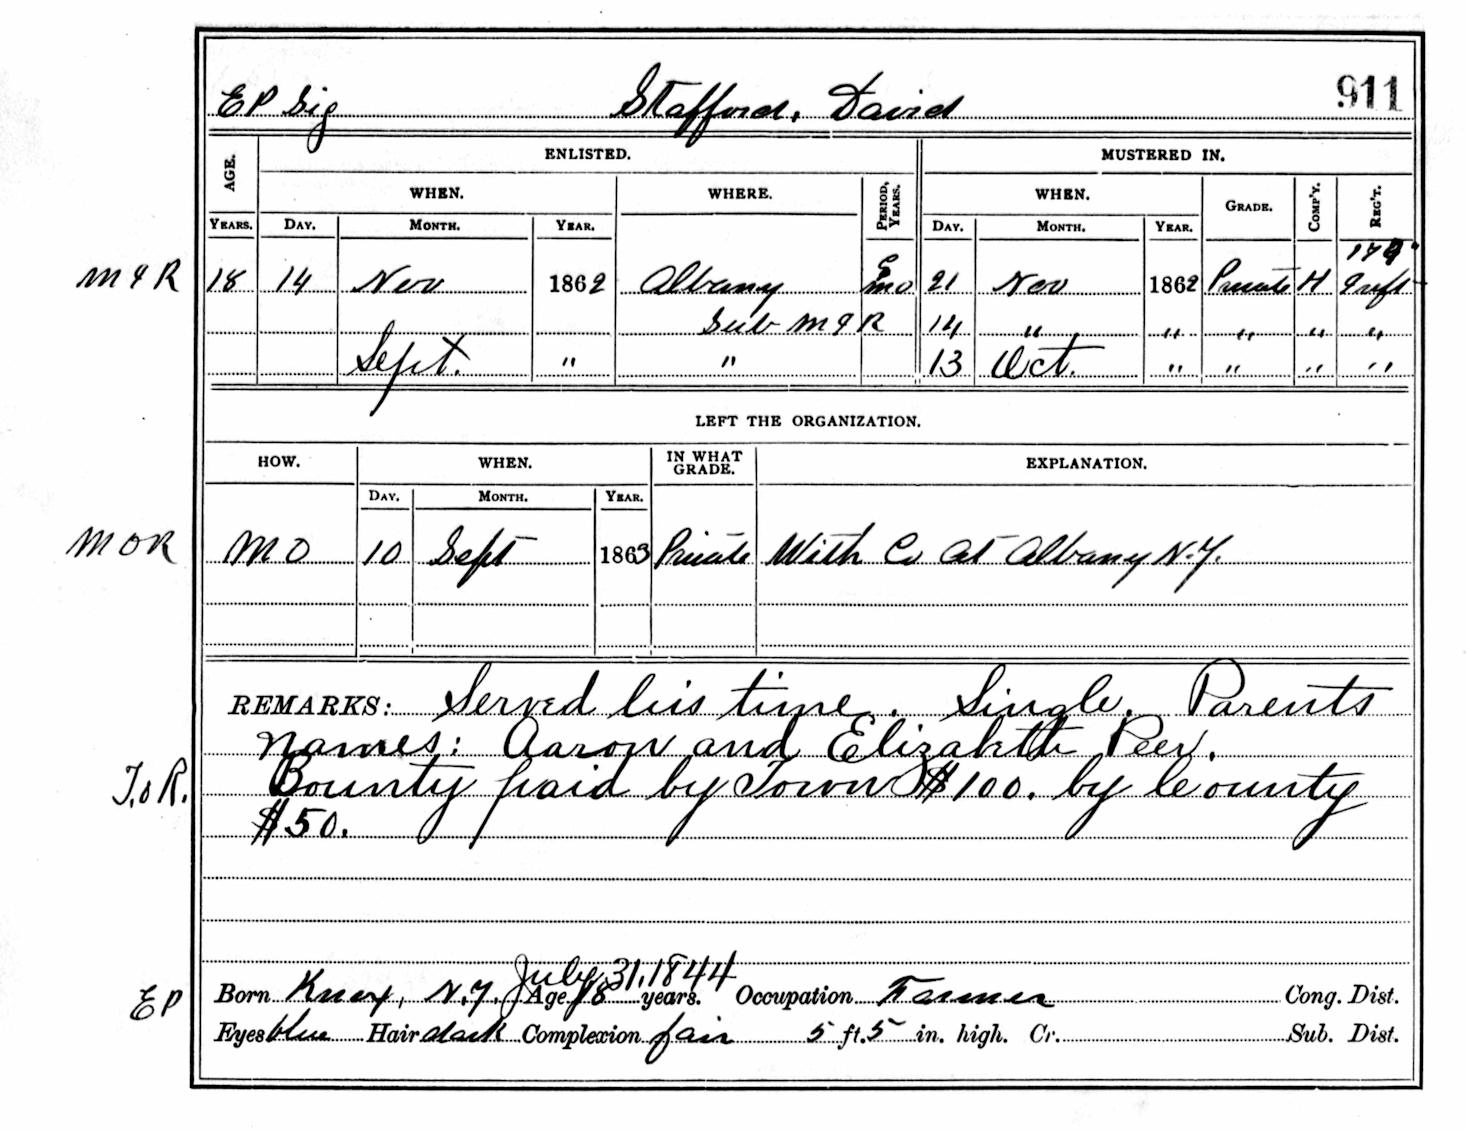 EP Sig Stafford, David 911
AGE. ENLISTED. MUSTERED IN.
WHEN. WHERE. PERIOD, YEARS. WHEN. GRADE. COMP'Y. REG'T.
YEARS. DAY. MONTH. YEAR. DAY. MONTH. YEAR.
M & R 18 14 Nov 1862 Albany 9 mo 21 Nov 1862 Private H Inft
Sub M & R 14 " " " " "
Sept. " " 13 Oct. " " " "
LEFT THE ORGANIZATION.
HOW. WHEN. IN WHAT GRADE. EXPLANATION.
DAY. MONTH. YEAR.
M O R M O 10 Sept 1863 Private With Co at Albany N.Y.
REMARKS: Served his time. Single. Parents
names: Aaron and Elizabeth Peer.
T.o R. Bounty paid by Town $100. by County
$50.
July 31, 1844
EP Born Knox, N.Y. Age 18 years. Occupation Farmer Cong. Dist.
Eyes blue Hair dark Complexion fair 5 ft. 5 in. high. Cr. Sub. Dist.